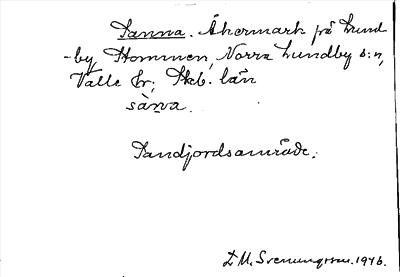 Sanna. Åkermark på Lund
-by, Stommen, Norra Lundby s:n,
Valle hr, Skb. län
sàṉa.
Sandjordsområde.
L.M. Svenungsson. 1946.